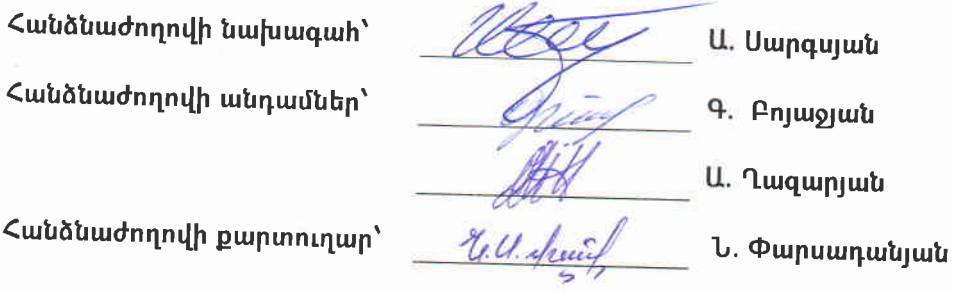 Հանձնաժողովի նախագահ՝ Ա. Սարգսյան
Հանձնաժողովի անդամներ՝ Գ. Բոյաջյան
Ա. Ղազարյան
Հանձնաժողովի քարտուղար՝ Ն. Փարսադանյան